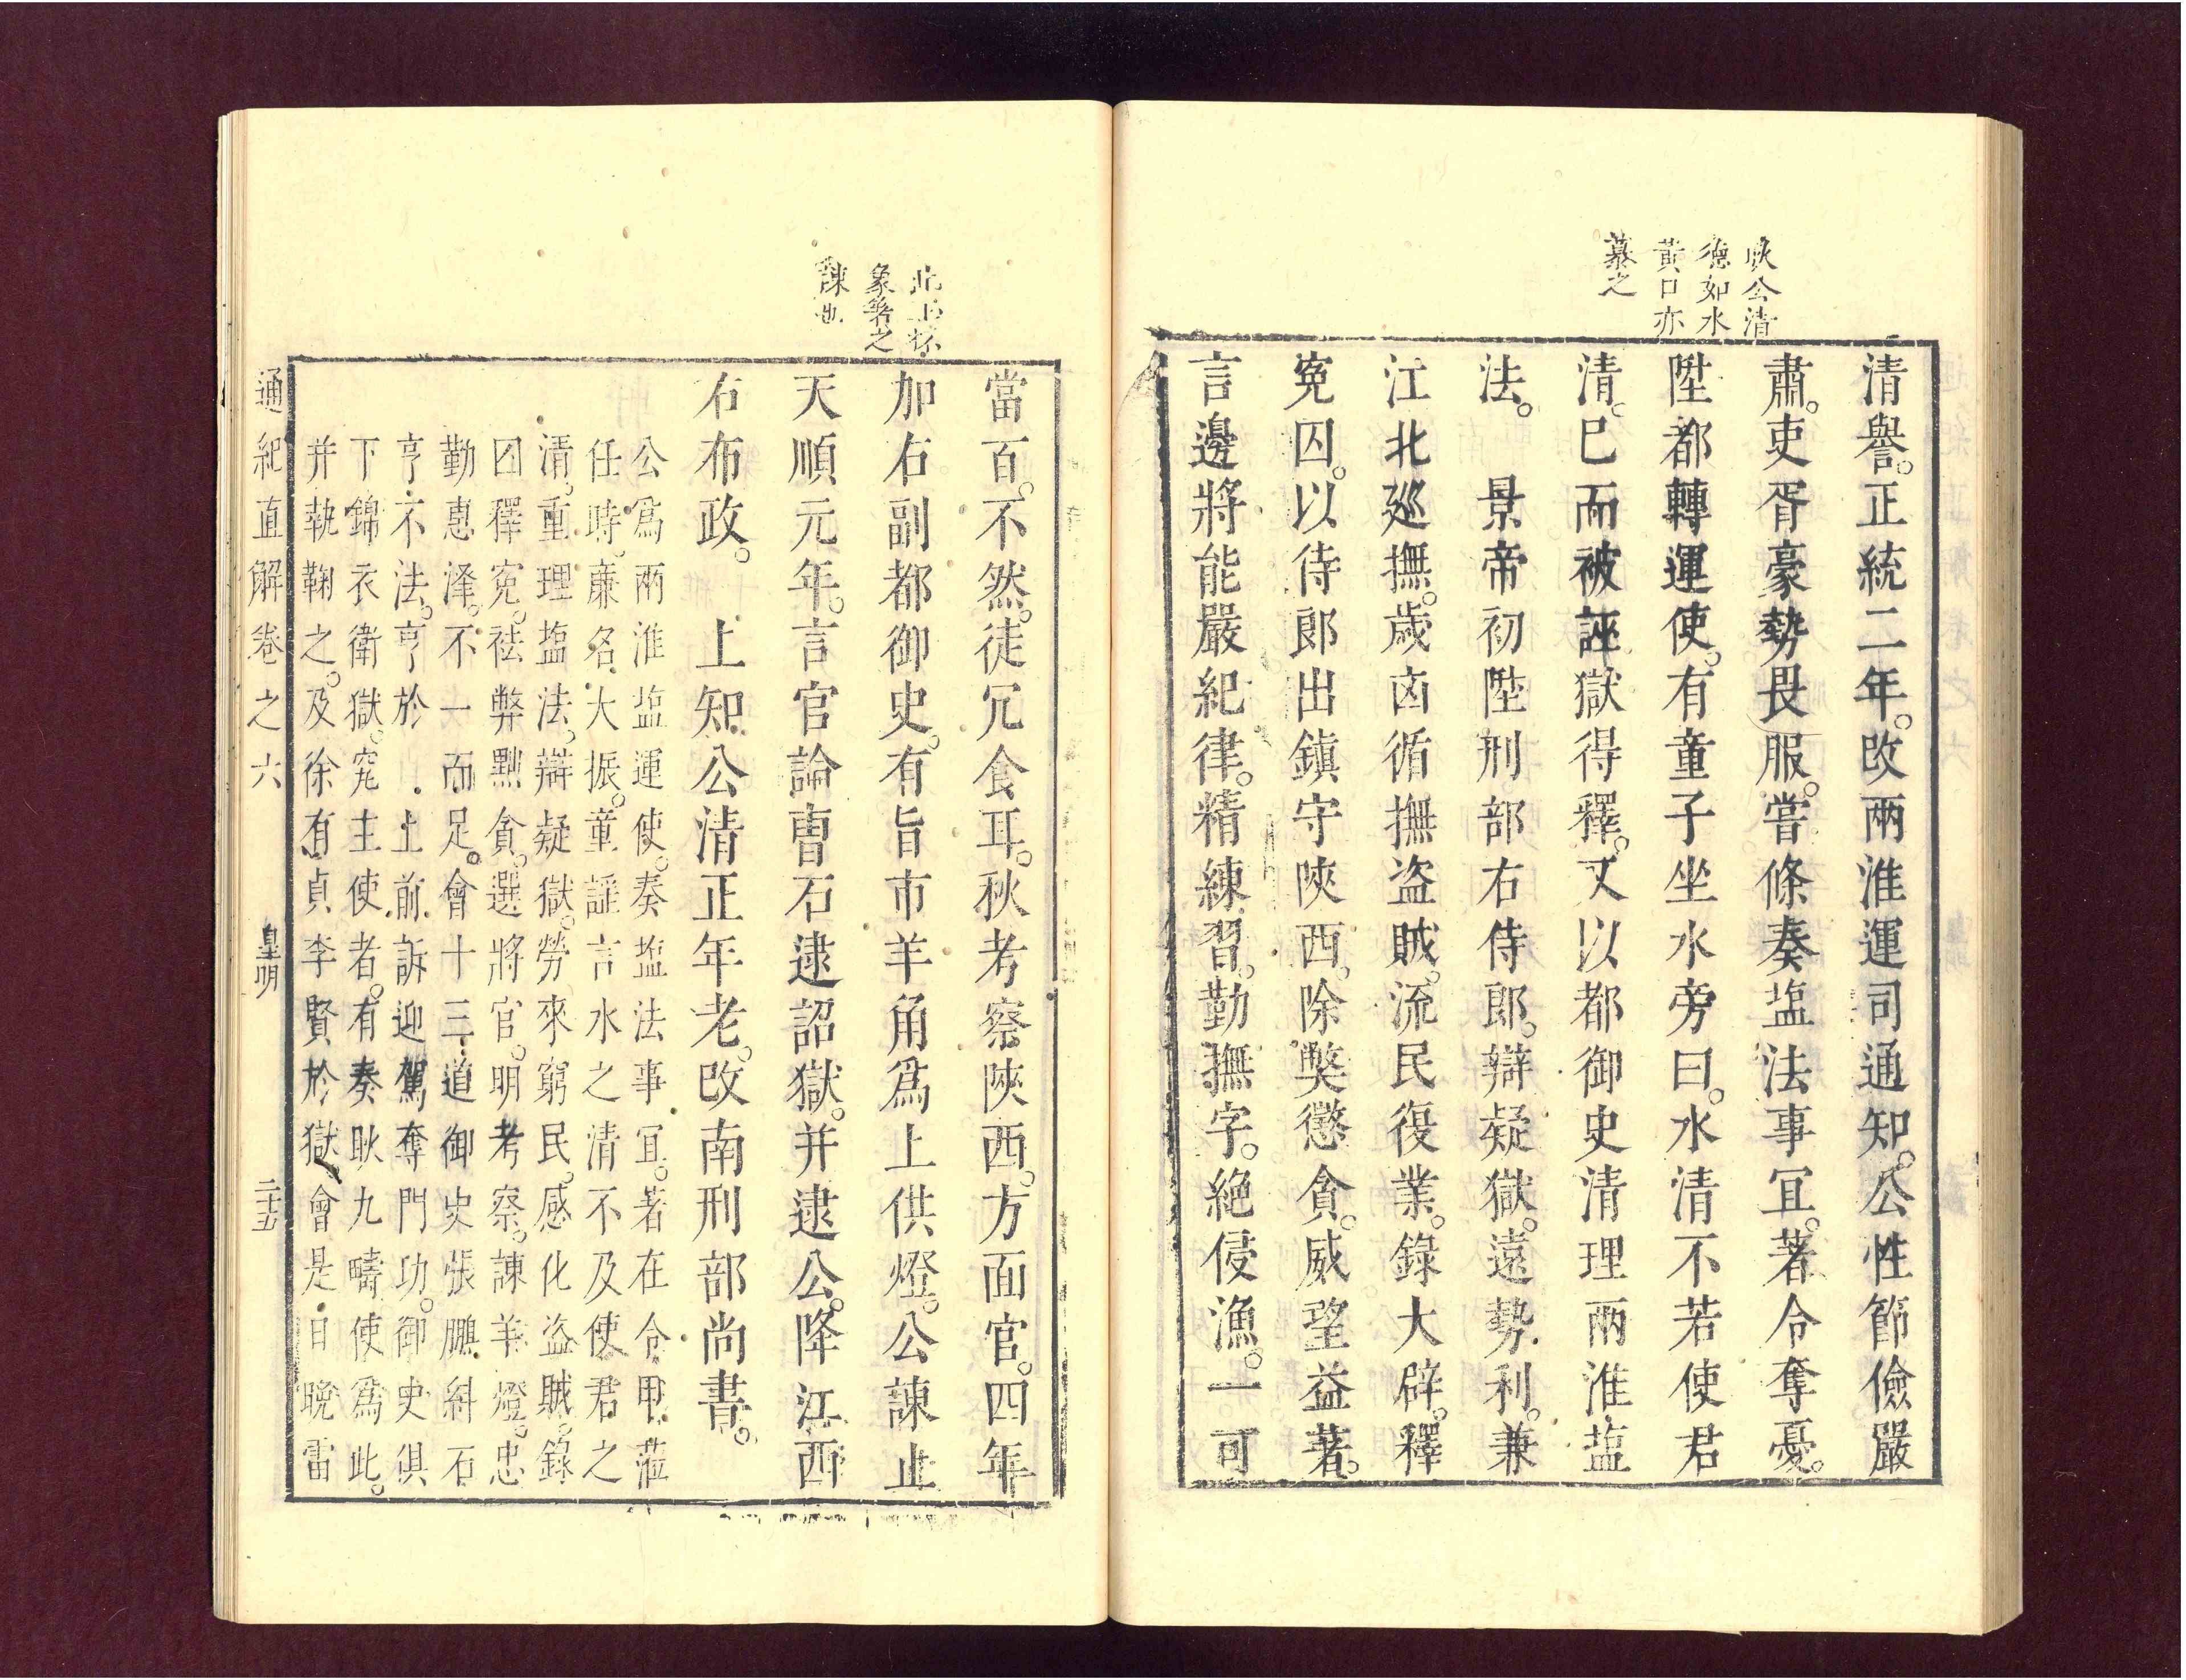 耿公清
德如水
黃口亦
慕之
清譽。正統二年。改兩淮運司通知。公性節儉嚴
肅。吏胥豪勢畏服。嘗條奏塩法事冝。著令奪憂。
陞都轉運使。有童子坐水旁曰。水清不若使君
清。巳而被誣獄得釋。又以都御史清理兩淮塩
法。　景帝初陞刑部右侍郎。辯疑獄。遠勢利。兼
江北廵撫。歲㐫循撫盗賊。流民復業。錄大辟。釋
寃囚。以待郎出鎮守陜西。除獘懲貪。威望益著。
言邊將能嚴紀律。精練習。勤撫字。絶侵漁。一可
當百。不然。徒冗食耳。秋考察陜西。方面官。四年
加右副都御史。有旨市羊角爲上供燈。公諫止
天順元年。言官論曺石逮詔獄。并逮公。降江西
右布政。　上知公清正年老。改南刑部尚書。
象箸之
諫也
公爲兩淮塩運使。奏塩法事冝。著在令甲。蒞
任時。亷名大振。童謡言水之清不及使君之
清。重理塩法。辯疑獄。勞來窮民。感化盗賊。錄
囚釋寃。祛弊黜貪。選將官。明考察。諫羊燈。忠
勤恵澤。不一而足。會十三道御史張鵬糾石
亨不法。亨於　上前訴迎駕奪門功。御史俱
下錦衣衛獄。究主使者。有奏耿九疇使爲此。
并執鞠之。及徐有貞李賢於獄。會是日晩雷
通紀直解卷之六　皇明　二十五